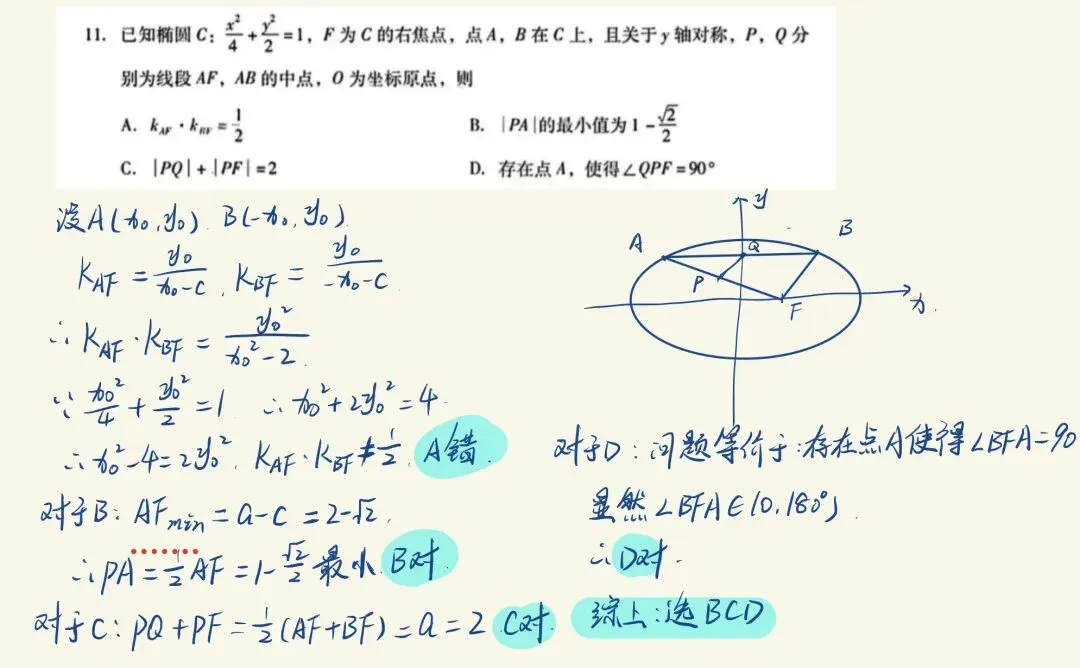 11. 已知椭圆 C: x²/4 + y²/2 = 1, F 为 C 的右焦点, 点 A, B 在 C 上, 且关于 y 轴对称, P, Q 分
别为线段 AF, AB 的中点, O 为坐标原点, 则
A. k_AF · k_BF = 1/2
B. |PA| 的最小值为 1 - √2/2
C. |PQ| + |PF| = 2
D. 存在点 A, 使得 ∠QPF = 90°
设A(x₀, y₀). B(-x₀, y₀)
K_AF = y₀/(x₀-c), K_BF = y₀/(-x₀-c)
∴ K_AF · K_BF = y₀²/(x₀²-2)
∵ x₀²/4 + y₀²/2 = 1 ∴ x₀² + 2y₀² = 4
∴ x₀² - 4 = 2y₀². K_AF · K_BF ≠ 1/2. A错.
对于B: AF_min = a-c = 2-√2.
∴ PA = 1/2 AF = 1-√2/2 最小. B对.
对于C: PQ + PF = 1/2 (AF+BF) = a = 2. C对.
y
A
Q
B
P
F
x
对于D: 问题等价于: 存在点A使得∠BFA=90
显然∠BFA∈(0, 180°)
∴ D对.
综上: 选BCD